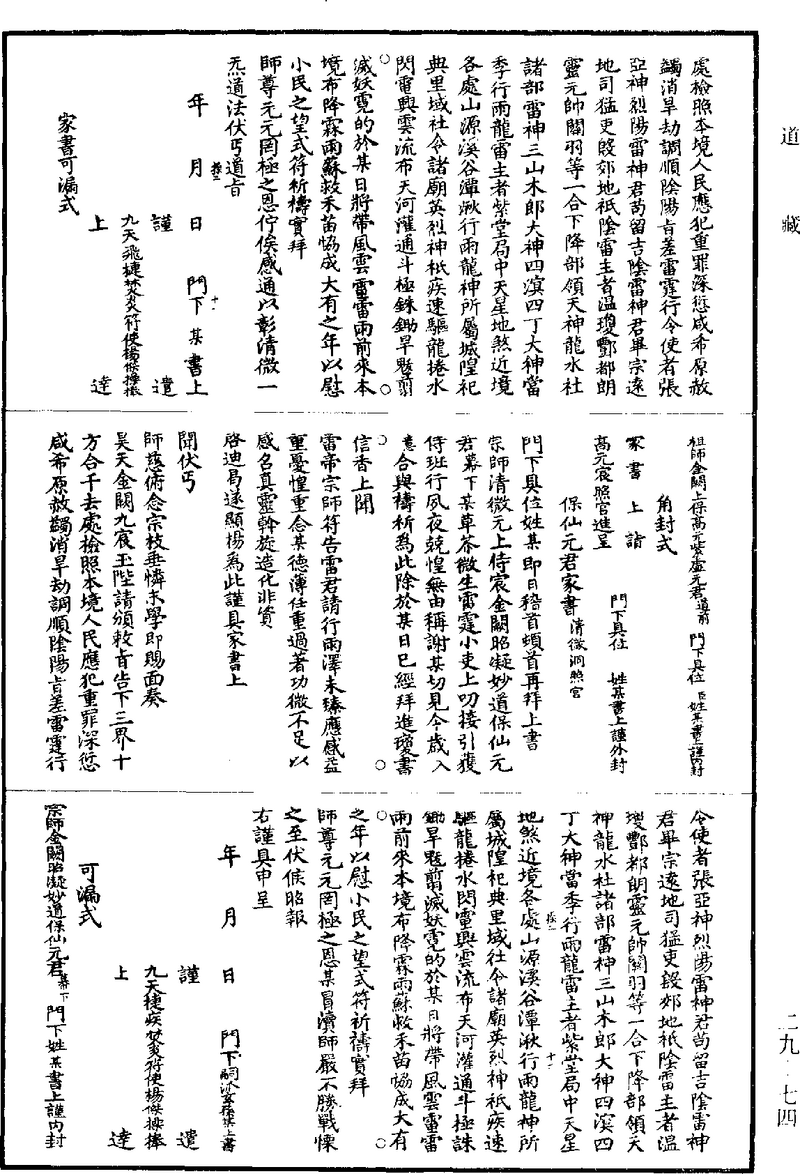 道藏
處檢照本境人民應犯重罪深愆咸希原赦
蠲消旱劫調順陰陽肯差雷霆行令使者張
亞神烈陽雷神君苟留吉陰雷神君畢宗遠
地司猛吏殷郊地祇陰雷主者溫瓊酆都朗
靈元帥關羽等一合下降部領天神龍水社
諸部雷神三山木郎大神四溟四丁大神當
季行雨龍雷主者紫堂局中天星地煞近境
各處山源溪谷潭湫行雨龍神所屬城隍祀
典里域社令諸廟英烈神祇疾速驅龍捲水
閃電興雲流布天河灌通斗極銖鋤旱魃翦
滅妖霓的於某日將帶風雲雷雷雨前來本
境布降霖雨蘇救禾苗恊成大有之年以慰
小民之望式符祈禱實拜
師尊元元罔極之恩佇俟感通以彰清微一
炁道法伏丐道旨
年 月 日 門下某書上
謹遣
九天飛捷焚炎符使楊傑操捧
上達
家書可漏式
祖師金闕上保高元紫虛元君道前 門下具位臣姓某書上謹內封
角封式
家書上詣 門下具位 姓某書上謹外封
高元宸照宮進呈
保仙元君家書清微洞照宮
門下具位姓某即日稽首頓首再拜上書
宗師清微元上侍宸金闕昭凝妙道保仙元
君幕下某草芥微生雷霆小吏上叨接引獲
侍班行夙夜兢惶無由稱謝某切見今歲入
意合與禱祈爲此除於某日已經拜進瓊書
信香上聞
雷帝宗師符告雷君請行雨澤未臻應感益
重憂惶重念某德薄任重過著功微不足以
感召真靈幹旋造化非資
啓迪曷遂顯揚爲此謹具家書上
聞伏丐
師慈俯念宗枝垂憐末學即賜面奏
昊天金闕九宸玉陛請頒敕旨告下三界十
方合干去處檢照本境人民應犯重罪深愆
咸希原赦蠲消旱劫調順陰陽肯差雷霆行
令使者張亞神烈陽雷神君苟留吉陰雷神
君畢宗遠地司猛吏殷郊地祇陰雷主者溫
瓊酆都朗靈元帥關羽等一合下降部領天
神龍水社諸部雷神三山木郎大神四溟四
丁大神當季行雨龍雷主者紫堂局中天星
地煞近境各處山源溪谷潭湫行雨龍神所
屬城隍祀典里域社令諸廟英烈神祇疾速
驅龍捲水閃電興雲流布天河灌通斗極誅
鋤旱魃翦滅妖霓的於某日將帶風雲雷雷
雨前來本境布降霖雨蘇救禾苗恊成大有
之年以慰小民之望式符祈禱實拜
師尊元元罔極之恩某冒瀆師嚴不勝戰慄
之至伏候昭報
右謹具申呈
年 月 日 門下嗣派 某書
謹遣
九天捷疾焚炎符使楊傑操捧
上達
可漏式
宗師金闕昭凝妙道保仙元君幕下 門下姓某書上謹內封
二九·七四